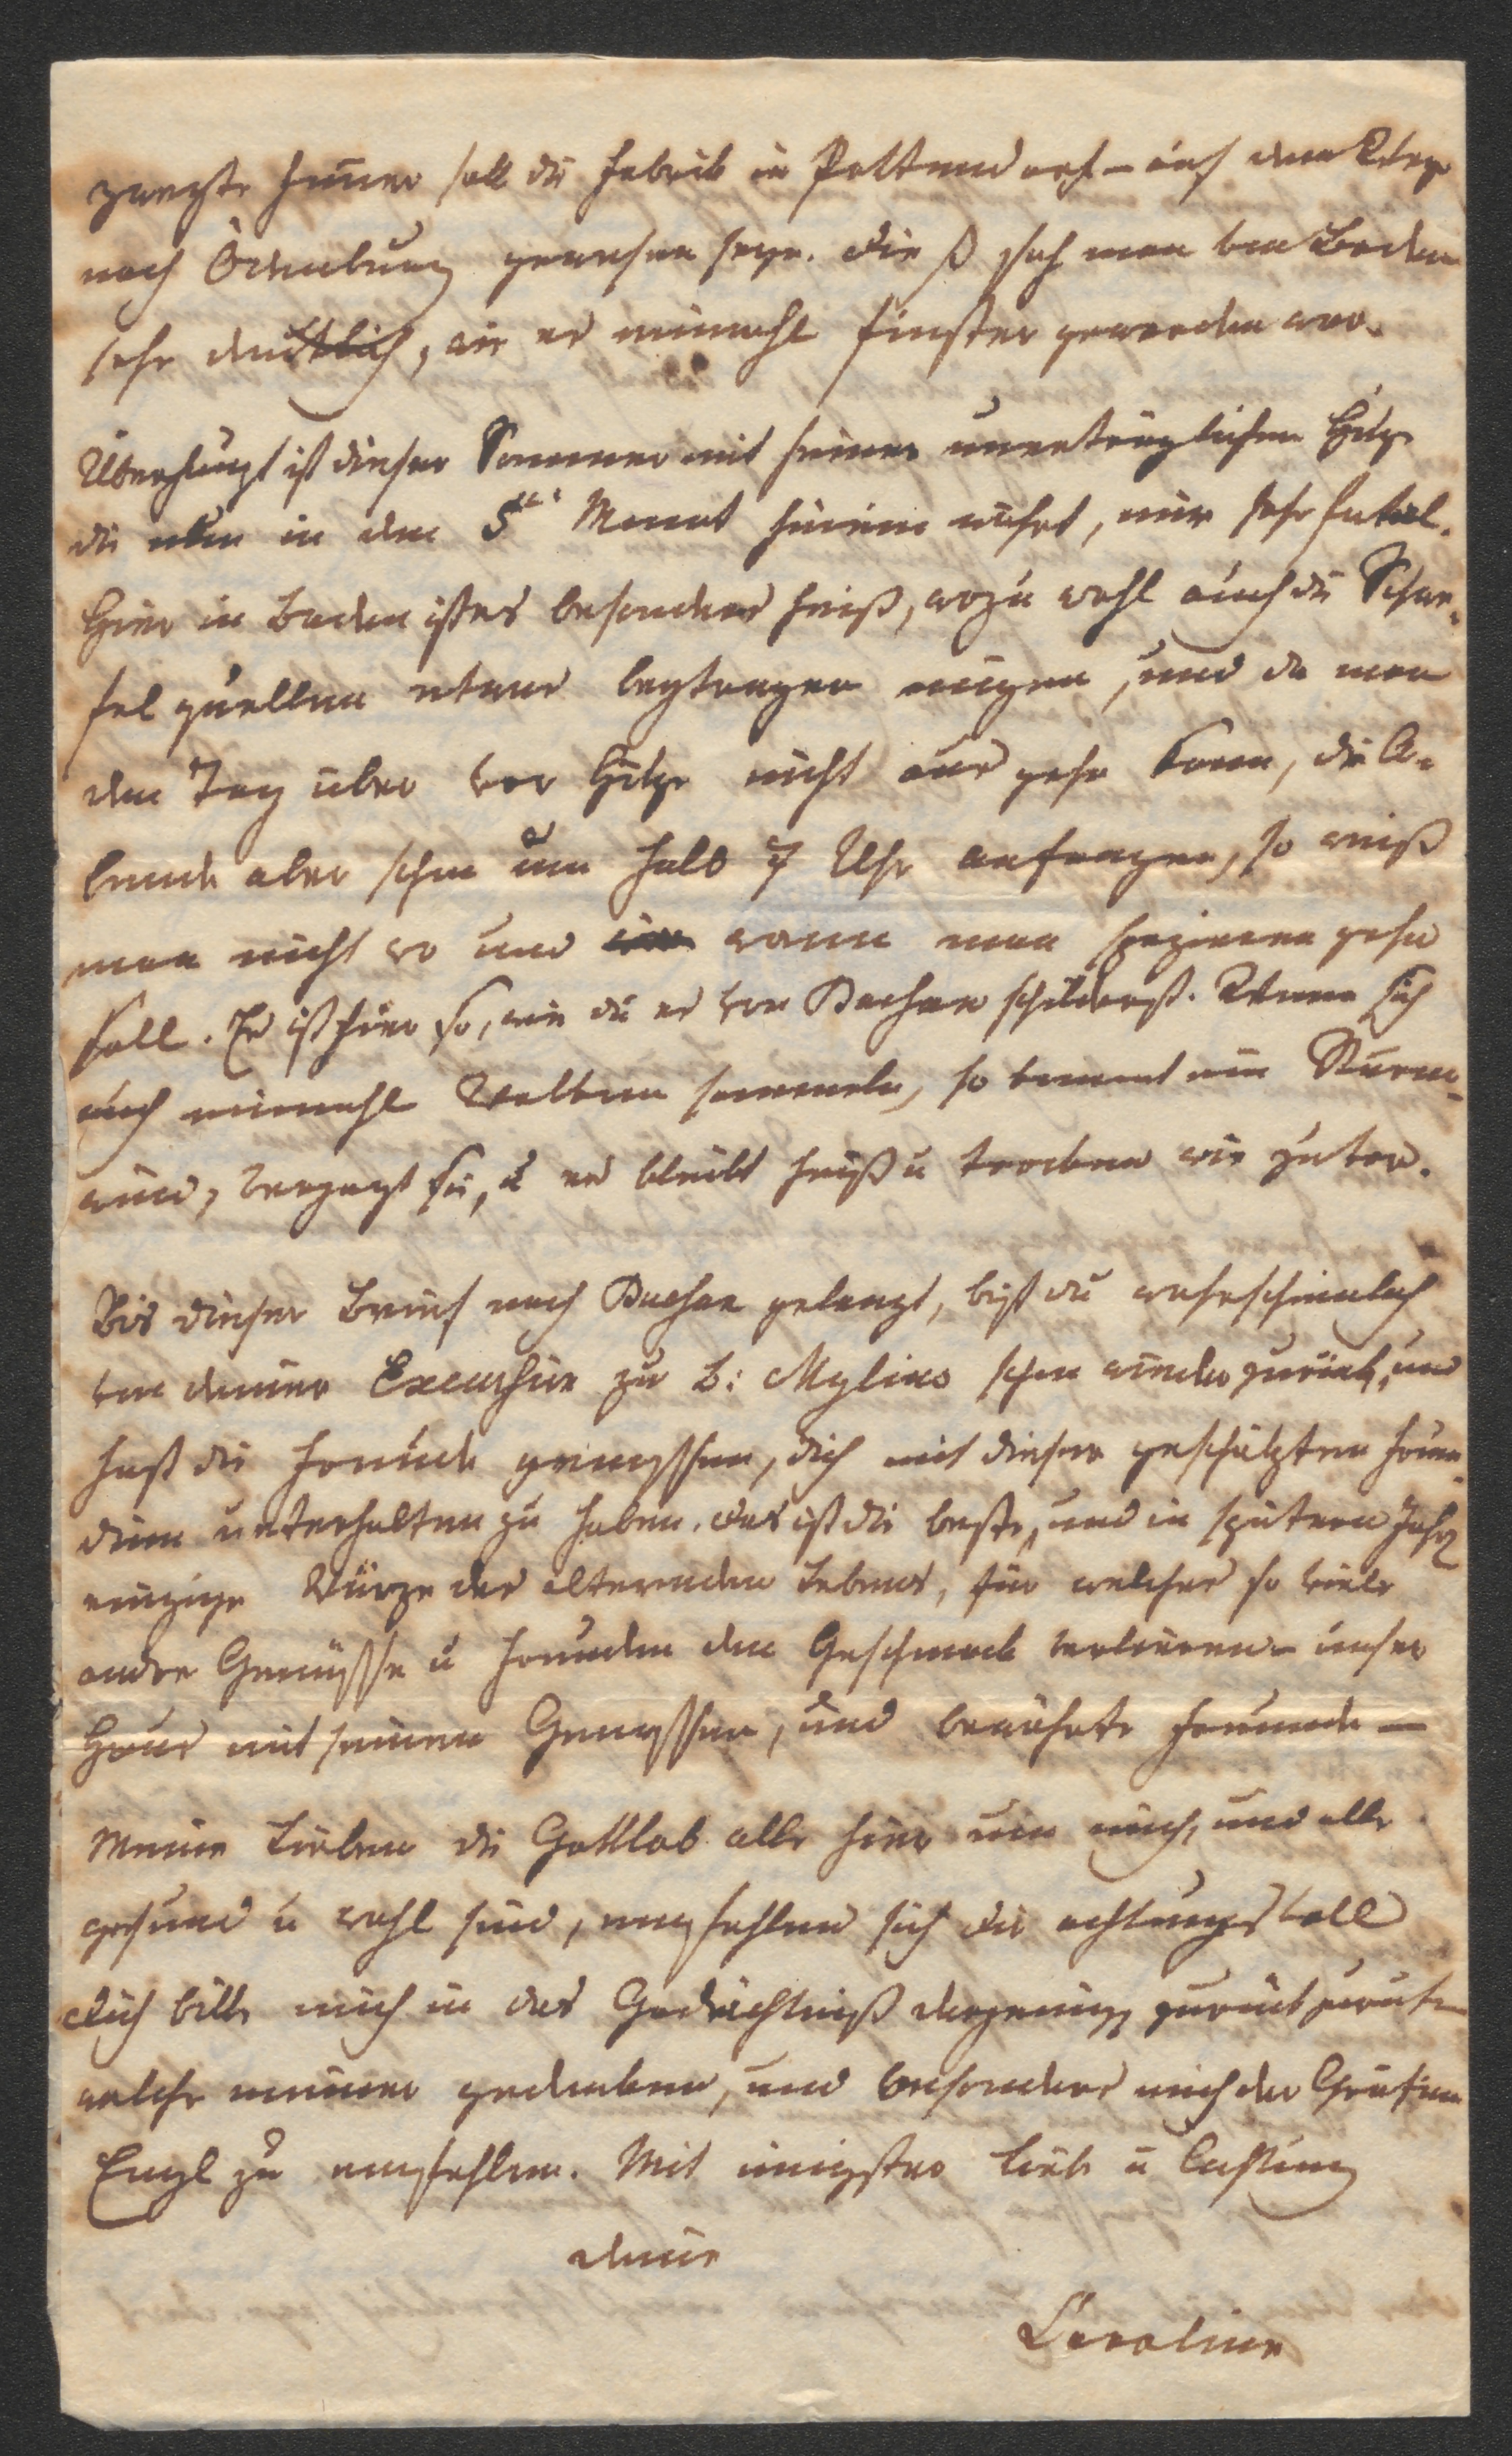 zweyte Feuer soll die Fabrik in Pottendorf – auf dem Wege
nach Ödenburg gewesen seyn. Dieß sah man von Baden
sehr deutlich, wie es einmahl finster geworden war.
Überhaupt ist dieser Sommer mit seiner unerträglichen Hitze
die nun in den 5ten Monat hinein währt, mir sehr fatal.
Hier in Baden ist es besonders heiß, wozu wohl auch die Schwe-
felquellen etwas beytragen mögen, und da man
den Tag über vor Hitze nicht aus gehn kann, die A-
bende aber schon um halb 7 Uhr anfangen, so weiß
man nicht wo und wann man spazieren gehn
soll. Es ist hier so, wie du es von Dachau schilderst. Wenn sich
auch einmahl Wolken sammeln, so kommt ein Sturm-
wind, verjagt sie, u es bleibt heiß u trocken wie zuvor.
Bis dieser Brief nach Dachau gelangt, bist du wahrscheinlich
von deiner Excursion zu B: Mylius schon wieder zurück, und
hast die Freude genossen, dich mit dieser geschätzten Freun-
dinn unterhalten zu haben. Das ist die beste, und in spätern Jahren
einzige Würze des alternden Lebens, für welches so viele
andre Genüsse u Freuden den Geschmack verlieren – unser
Haus mit seinen Genossen, und bewährte Freunde –
Meine Lieben die Gottlob alle hier um mich, und alle
gesund u wohl sind, empfehlen sich dir achtungsvoll
Dich bitte mich in das Gedächtniß derjenigen zurückzurufen
welche meiner gedenken, und besonders mich der Gräfinn
Engl zu empfehlen. Mit innigster Liebe u Achtung
deine
Caroline